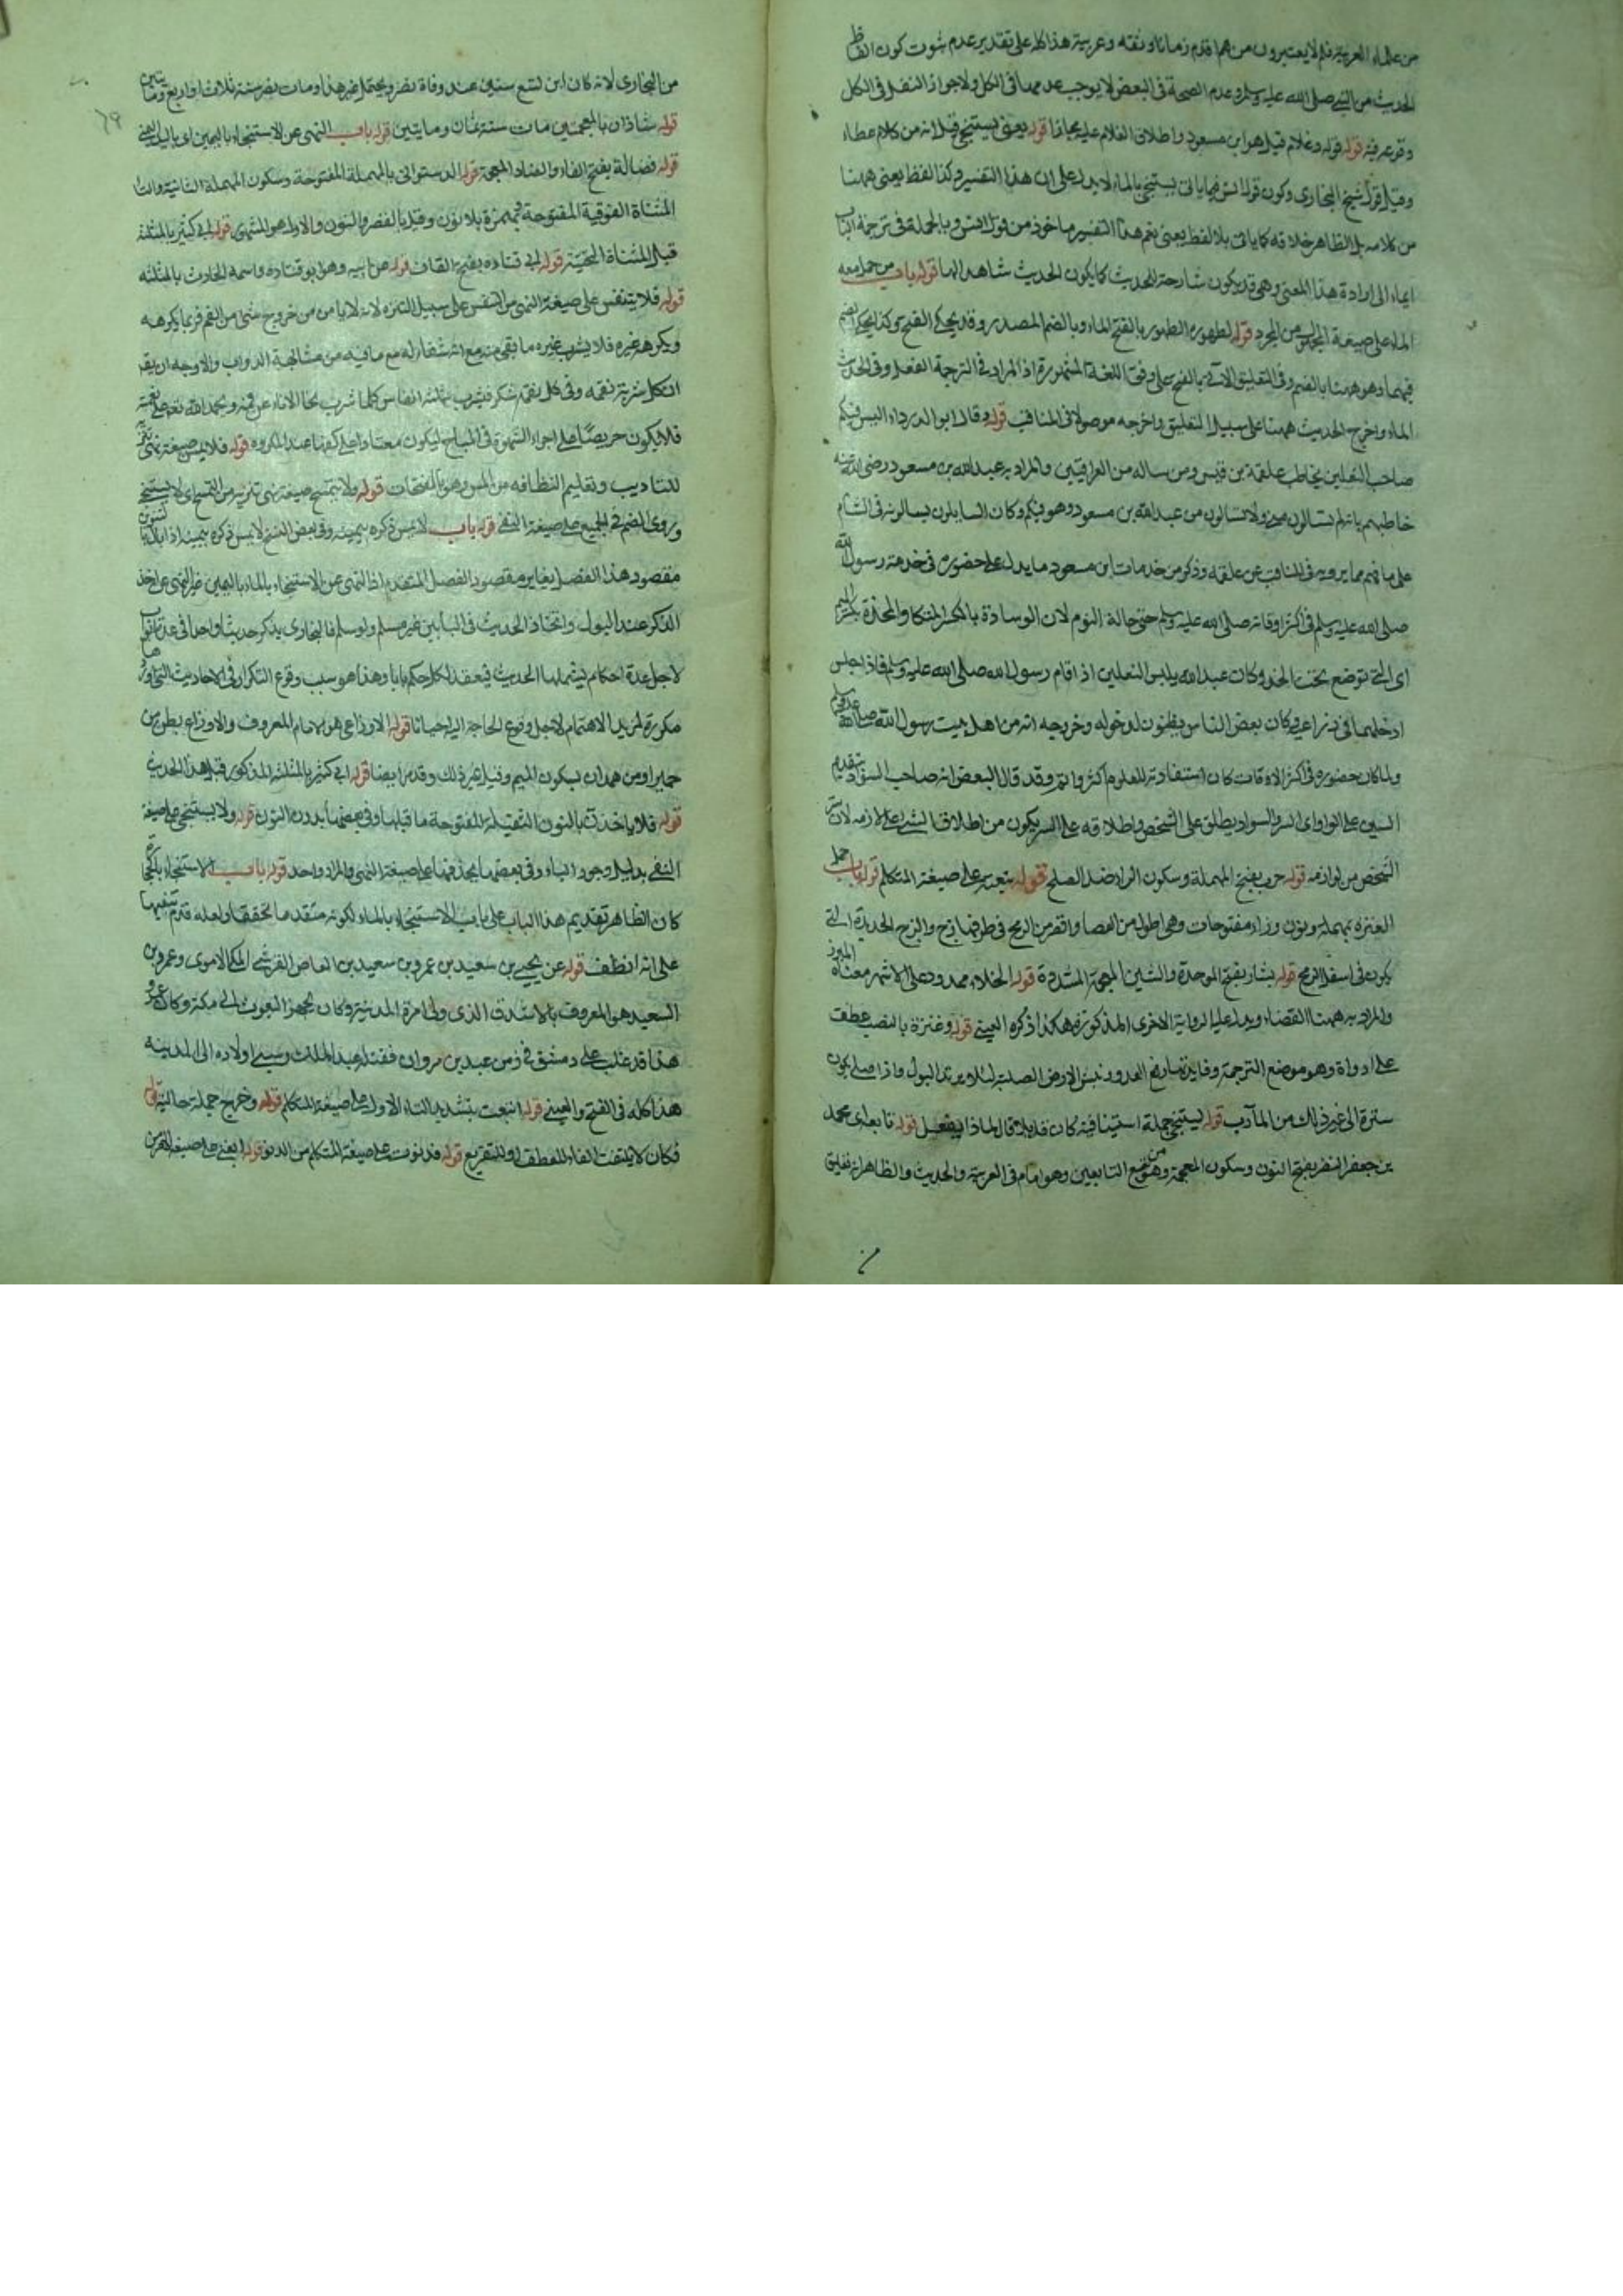 من علماء العربية فلم لا يعتبرون من هما قدم زمانا وثقه وعربية هذا كله على تقدير عدم ثبوت كون الفاظ
الحديث من النبي صلى الله عليه وسلم وعدم الصحة في البعض لا يوجب عدمها في الكل ولا جواز النقل في الكل
وقوعه فيه قوله وغلام قيل هو ابن مسعود واطلاق الغلام عليه مجازا قوله يعني يستنجي قيل انه من كلام عطاء
وقيل قول شيخ البخاري وكون قول انس فيما ياتي يستنجي بالماء لا يدل على ان هذا التفسير وكذا لفظ يعني ههنا
من كلامه بل الظاهر خلافه كما ياتي بلا لفظ يعني نعم هذا التفسير ماخوذ من قول انس وبالجملة في ترجمة الباب
ايماء الى ارادة هذا المعنى وهي قد يكون شارحة للحديث كما يكون الحديث شاهدا لها قوله باب من حمل معه
الماء على صيغة المجهول من المجرد قوله لطهوره الطهور بالفتح الماء وبالضم المصدر وقد يحكى الفتح وكذا يحكى الضم
فيهما وهو ههنا بالضم وفي التعليق الآتي بالفتح على وفق اللغة المشهورة اذ المراد في الترجمة الفعل وفي الحديث
الماء واخرج الحديث ههنا على سبيل التعليق واخرجه موصولا في المناقب قوله وقال ابو الدرداء اليس فيكم
صاحب النعلين يخاطب علقمة بن قيس ومن ساله من العراقيين والمراد به عبد الله بن مسعود رضي الله عنه
خاطبهم بانهم تسالون عني ولا تسالون من عبد الله بن مسعود وهو فيكم وكان السايلون يسالونه في الشام
على ما يرويه في المناقب عن علقمه وذكر من خدمات ابن مسعود ما يدل على حضوره في خدمة رسول الله
صلى الله عليه وسلم في اكثر اوقاته صلى الله عليه وسلم حتى حالة النوم لان الوسادة بالكسر المتكا والمخدة بكسر الميم
اي التي توضع تحت الخد وكان عبد الله يلبس النعلين اذا قام رسول الله صلى الله عليه وسلم فاذا جلس
ادخلهما في ذراعيه وكان بعض الناس يظنون لدخوله وخروجه انه من اهل بيت رسول الله صلى الله عليه وسلم
ولما كان حضوره في اكثر الاوقات كان استفادته للعلوم اكثر واتم وقد قال البعض انه صاحب السواد بتقديم
السين على الواو اي السر والسواد يطلق على الشخص واطلاقه على السر يكون من اطلاق الشيء على لازمه لان
الشخص من لوازمه قوله حرب بفتح المهملة وسكون الراء ضد الصلح قوله بتعنه على صيغة المتكلم قوله باب حمل
العنزة بمهملة ونون وزاء مفتوحات وهي اطول من العصا واقصر من الرمح في طرفها زج والزج الحديدة التي
يكون في اسفل الرمح قوله بشار بفتح الموحدة والشين المعجمة المشددة قوله الخلاء ممدود على الاشهر معناه المبرز
والمراد به ههنا القضاء ويدل عليه الرواية الاخرى المذكورة هكذا ذكره العيني قوله وعنزة بالنصب عطف
على اداوة وهو موضع الترجمة وفايدتها رفع العدو ونبش الارض الصلبة لئلا يرتد البول واذا صلى يكون
سترة الى غير ذلك من المآرب قوله يستنجي جملة استينافية كان قايلا قال ماذا يفعل قوله تابعه اي محمد
بن جعفر النضر بفتح النون وسكون المعجمة وهو من تبع التابعين وهو امام في العربية والحديث والظاهر انه تعليق
من البخاري لانه كان ابن تسع سنين عند وفاة نضر ويحتمل غير هذا ومات نضر سنة ثلاث او اربع ومايتين
قوله شاذان بالمعجمتين مات سنة ثمان ومايتين قوله باب النهي عن الاستنجاء باليمين اي باليد اليمنى
قوله فضالة بفتح الفاء والضاد المعجمة قوله الدستوائي بالمهملة المفتوحة وسكون المهملة الثانية والتاء
المثناة الفوقية المفتوحة وبهمزة بلا نون وقيل بالقصر والنون والاول هو المشهور قوله ابي كثير بالمثلثة
قبل المثناة التحتية قوله ابي قتاده بفتح القاف قوله عن ابيه وهو ابو قتادة واسمه الحارث بالمثلثه
قوله فلا يتنفس على صيغة النهي من التنفس على سبيل التنزه لانه لا يامن من خروج شيء من الفم فربما يكرهه
ويكرهه غيره فلا يشرب غيره ما بقي منه مع انه شفاء له مع ما فيه من مشابهة الدواب والاوجه ان يقر
ان كل شربة نعمه وفي كل نعمه شكر فيشرب بثلثة انفاس كلما شرب نحا الاناء عن فمه وبحمد الله تعالى على نعمته
فلا يكون حريصا على اجراء الشهوة في المباح ليكون معتادا على كفها عند المكروه قوله فلا يمس صيغة نهي تنزيه
للتاديب وتعليم النظافه من المس وهو بالفتحات قوله ولا يتمسح صيغة نهي تنزيه من التمسح اي لا يستنج
وروي الضم في الجميع على صيغة النفي قوله باب لا يمس ذكره بيمينه وفي بعض النسخ لا يمس ذكره بيمينه اذا بال
مقصود هذا الفصل يغاير مقصود الفصل المتقدم اذ النهي عن الاستنجاء بالماء باليمين غير النهي عن اخذ
الذكر عند البول واتخاذ الحديث في البابين غير مسلم ولو سلم فالبخاري يذكر حديثا واحدا في عدة ابواب
لاجل عدة احكام يشملها الحديث فيعقد لكل حكم بابا وهذا هو سبب وقوع التكرار في الاحاديث التي
مكررة لمزيد الاهتمام لاجل وقوع الحاجة اليه احيانا قوله الاوزاعي هو الامام المعروف والاوزاع بطن من
حمير او من همدان بسكون الميم وقيل غير ذلك وقد مر ايضا قوله ابي كثير بالمثلثه المذكور قبل هذا الحديث
قوله فلا ياخذن بالنون الثقيلة المفتوحة ما قبلها وفي بعضها بدون النون قوله ولا يستنجي على صيغة
النفي بدليل وجود الياء وفي بعضها بحذفها على صيغة النهي والمراد واحد قوله باب الاستنجاء بالحجارة
كان الظاهر تقديم هذا الباب على باب الاستنجاء بالماء لكونه متقدما تحققا ولعله قدم تنبيها
على انه انظف قوله عن يحيى بن سعيد بن عمرو بن سعيد بن العاص القرشي المكي الاموي وعمرو بن
السعيد هو المعروف بالاشدق الذي ولي امرة المدينة وكان يجهز البعوث الى مكة وكان عمرو
هذا قد غلب على دمشق في زمن عبد بن مروان فقتله عبد الملك وسير اولاده الى المدينه
هذا كله في الفتح والعيني قوله اتبعت بتشديد التاء الاولى على صيغة المتكلم قوله وخرج جملة حالية قوله
فكان لا يلتفت الفاء للعطف او للتفريع قوله فدنوت على صيغة المتكلم من الدنو قوله ابغني على صيغة الامر من